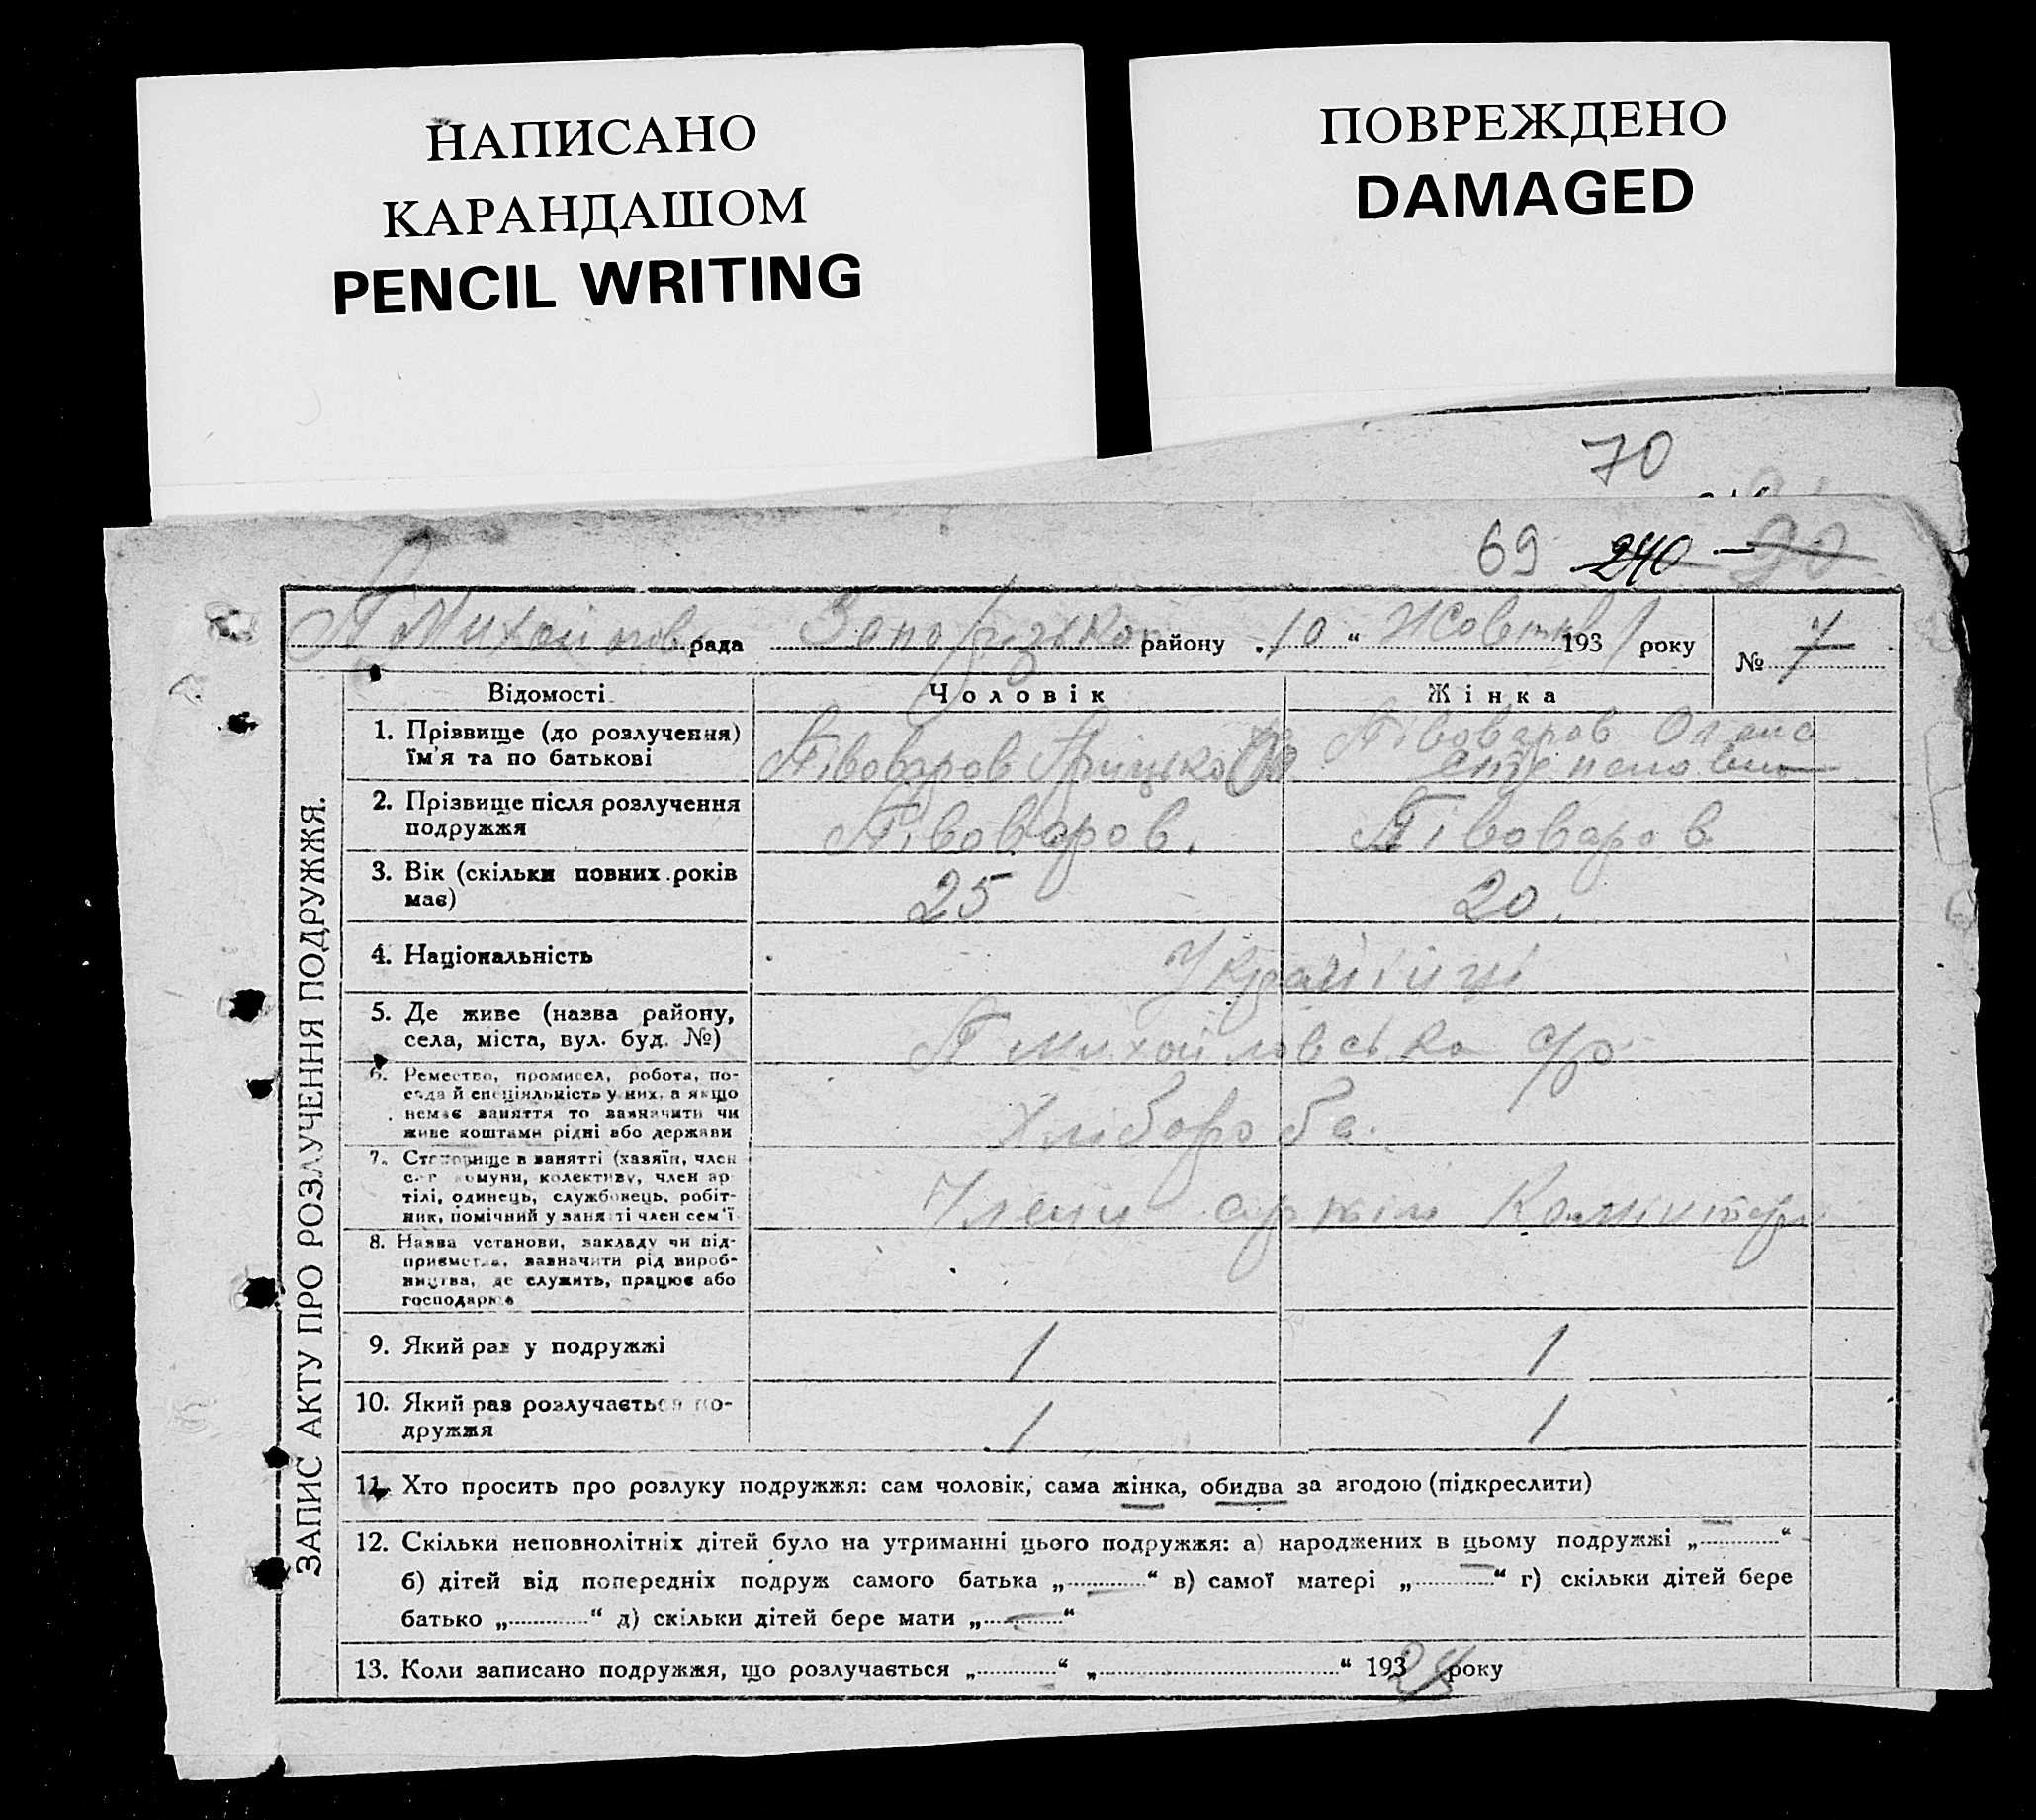 НАПИСАНО
КАРАНДАШОМ
PENCIL WRITING
ПОВРЕЖДЕНО
DAMAGED
70
69 240 90
П Михайлов рада району „10“ Жовтня 1931 року № 7
Відомості Чоловік Жінка
1. Прізвище (до розлучення) їм'я та по батькові
Півоваров Грицько
Півоваров Олена
Степановна
2. Прізвище після розлучення
подружжя
Півоваров. Півоваров
3. Вік (скільки повних років
має)
25 20.
4. Національність
Українці
5. Де живе (назва району,
села, міста, вул. буд. №)
П Михайловська с/р
6. Ремество, промисел, робота, по-
сада й спеціяльність у них, а якщо
немає заняття то зазначити чи
живе коштами рідні або держави
Хлібороба.
7. Становище в занятті (хазяїн, член
с.-г комуни, колективу, член ар
тілі, одинець, службовець, робіт-
ник, помічний у занятті член сем'ї
Члени артіли
8. Назва установи, закладу чи під-
приємства, зазначити рід вироб-
ництва, де служить, працює або
господарює
9. Який раз у подружжі
1 1
10. Який раз розлучається по-
дружжя
1 1
11. Хто просить про розлуку подружжя: сам чоловік, сама жінка, обидва за згодою (підкреслити)
12. Скільки неповнолітніх дітей було на утриманні цього подружжя: а) народжених в цьому подружжі „ – “
б) дітей від попередніх подруж самого батька „ – “ в) самої матері „ – “ г) скільки дітей бере
батько „ “ д) скільки дітей бере мати „ – “
13. Коли записано подружжя, що розлучається „ “ „ “ 193 року
ЗАПИС АКТУ ПРО РОЗЛУЧЕННЯ ПОДРУЖЖЯ.